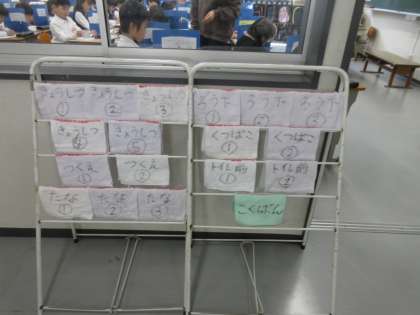 きょうしつ ①
きょうしつ ②
きょうしつ ③
きょうしつ ④
きょうしつ ⑤
つくえ ①
つくえ ②
たな ①
たな ②
たな ③
ろう下 ①
ろう下 ②
ろう下 ③
くつばこ ①
くつばこ ②
トイレ前 ①
トイレ前 ②
こくばん